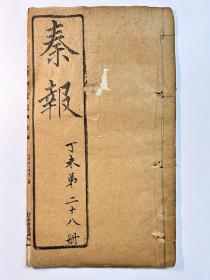 秦報
丁未第二十八册